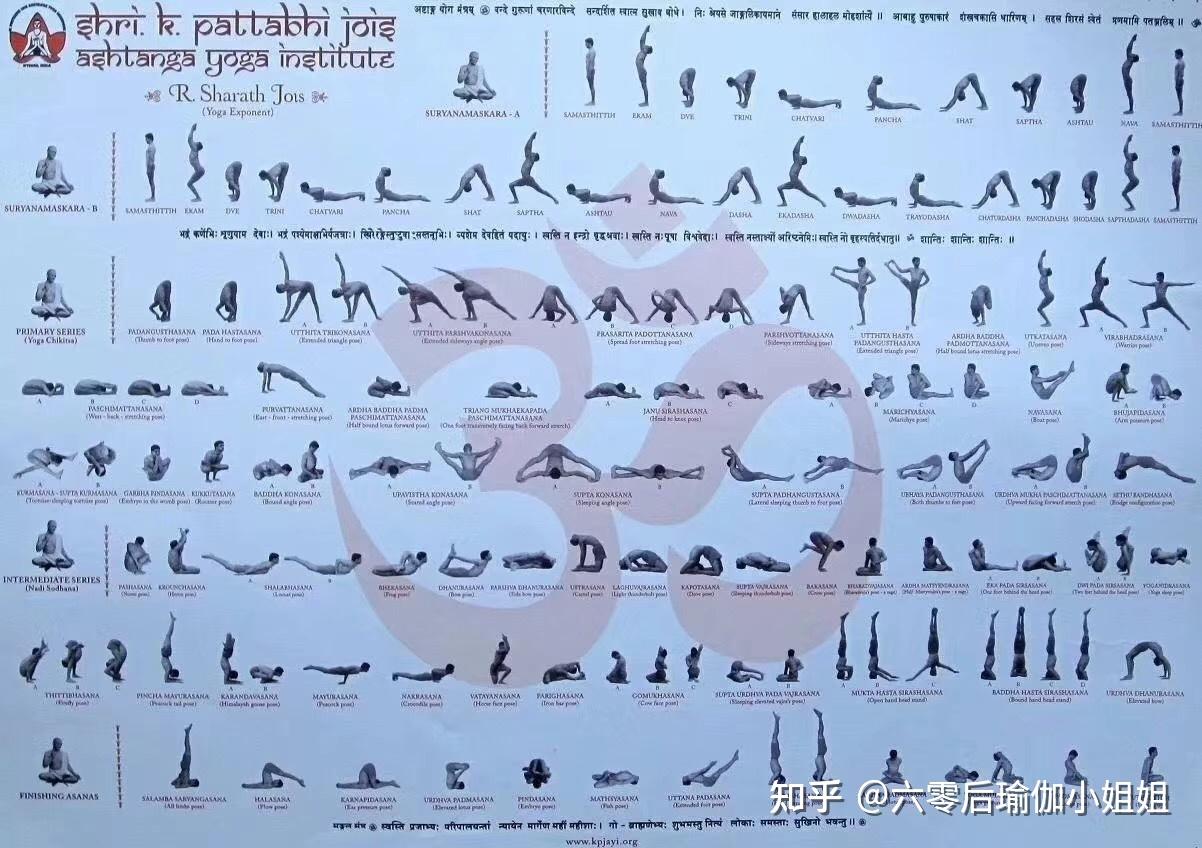 shri. k. pattabhi jois
ashtanga yoga institute
R. Sharath Jois
(Yoga Exponent)
अष्टाङ्ग योग मंत्रम् ॐ वन्दे गुरूणां चरणारविन्दे सन्दर्शित स्वात्म सुखाव बोधे। निः श्रेयसे जाङ्गलिकायमाने संसार हालाहल मोहशांत्यै॥ आबाहु पुरुषाकारं शंखचक्रासि धारिणम्। सहस्र शिरसं श्वेतं प्रणमामि पतञ्जलिम्॥ ॐ
SURYANAMASKARA - A
SAMASTHITTIH EKAM DVE TRINI CHATVARI PANCHA SHAT SAPTHA ASHTAU NAVA SAMASTHITTIH
SURYANAMASKARA - B
SAMASTHITTIH EKAM DVE TRINI CHATVARI PANCHA SHAT SAPTHA ASHTAU NAVA DASHA EKADASHA DWADASHA TRAYODASHA CHATURDASHA PANCHADASHA SHODASHA SAPTHADASHA SAMASTHITTIH
PRIMARY SERIES
(Yoga Chikitsa)
A B A B A B C D A B A B
PADANGUSTHASANA
(Thumb to foot pose)
PADA HASTASANA
(Hand to foot pose)
UTTHITA TRIKONASANA
(Extended triangle pose)
UTTHITA PARSHVAKONASANA
(Extended sideways angle pose)
PRASARITA PADOTTANASANA
(Spread foot stretching pose)
PARSHVOTTANASANA
(Sideways stretching pose)
UTTHITA HASTA
PADANGUSTHASANA
(Extended triangle pose)
ARDHA BADDHA
PADMOTTANASANA
(Half bound lotus stretching pose)
UTKATASANA
VIRABHADRASANA
(Warrior pose)
A B C D A B C A B C D A B
PASCHIMATTANASANA
(West - back - stretching pose)
PURVATTANASANA
(East - front - stretching pose)
ARDHA BADDHA PADMA
PASCHIMATTANASANA
(Half bound lotus forward pose)
TRIANG MUKHAEKAPADA
PASCHIMATTANASANA
(One foot transversely facing back forward stretch)
JANU SIRASHASANA
(Head to knee pose)
MARICHYASANA
(Marichya pose)
NAVASANA
(Boat pose)
BHUJAPIDASANA
(Arm pressure pose)
KURMASANA - SUPTA KURMASANA
(Tortoise-sleeping tortoise pose)
GARBHA PINDASANA
(Embryo in the womb pose)
KUKKUTASANA
(Rooster pose)
BADDHA KONASANA
(Bound angle pose)
UPAVISTHA KONASANA
SUPTA KONASANA
(Sleeping angle pose)
SUPTA PADHANGUSTASANA
(Lateral sleeping thumb to foot pose)
UBHAYA PADANGUSTHASANA
(Both thumbs to foot pose)
URDHVA MUKHA PASCHIMATTANASANA
(Upward facing forward stretch pose)
SETHU BANDHASANA
(Bridge configuration pose)
INTERMEDIATE SERIES
(Nadi Sodhana)
PASHASANA
(Noose pose)
KROUNCHASANA
(Heron pose)
SHALABHASANA
(Locust pose)
BHEKASANA
(Frog pose)
DHANURASANA
(Bow pose)
PARSHVA DHANURASANA
(Side bow pose)
USTRASANA
(Camel pose)
LAGHUVAJRASANA
(Light thunderbolt pose)
KAPOTASANA
(Dove pose)
SUPTA VAJRASANA
(Sleeping thunderbolt pose)
BAKASANA
(Crow pose)
BHARADVAJASANA
ARDHA MATSYENDRASANA
EKA PADA SIRSASANA
(One foot behind the head pose)
DWI PADA SIRSASANA
(Two feet behind the head pose)
YOGANIDRASANA
(Yoga sleep pose)
A B C A B A B C A B A B C A B C D
THITTIBHASANA
(Firefly pose)
PINCHA MAYURASANA
(Peacock tail pose)
KARANDAVASANA
(Himalayan goose pose)
MAYURASANA
(Peacock pose)
NAKRASANA
(Crocodile pose)
VATAYANASANA
(Horse face pose)
PARIGHASANA
(Iron bar pose)
GOMUKHASANA
(Cow face pose)
SUPTA URDHVA PADA VAJRASANA
MUKTA HASTA SIRASHASANA
(Open hand head stand)
BADDHA HASTA SIRASHASANA
(Bound hand head stand)
URDHVA DHANURASANA
(Elevated bow)
FINISHING ASANAS
SALAMBA SARVANGASANA
(All limbs pose)
HALASANA
(Plow pose)
KARNAPIDASANA
(Ear pressure pose)
URDHVA PADMASANA
(Elevated lotus pose)
PINDASANA
(Embryo pose)
MATHSYASANA
(Fish pose)
UTTANA PADASANA
(Extended foot pose)
知乎 @六零后瑜伽小姐姐
मङ्गल मंत्र ॐ स्वस्ति प्रजाभ्यः परिपालयन्तां न्यायेन मार्गेण महीं महीशाः। गो - ब्राह्मणेभ्यः शुभमस्तु नित्यं लोकाः समस्ताः सुखिनो भवन्तु॥ ॐ
www.kpjayi.org